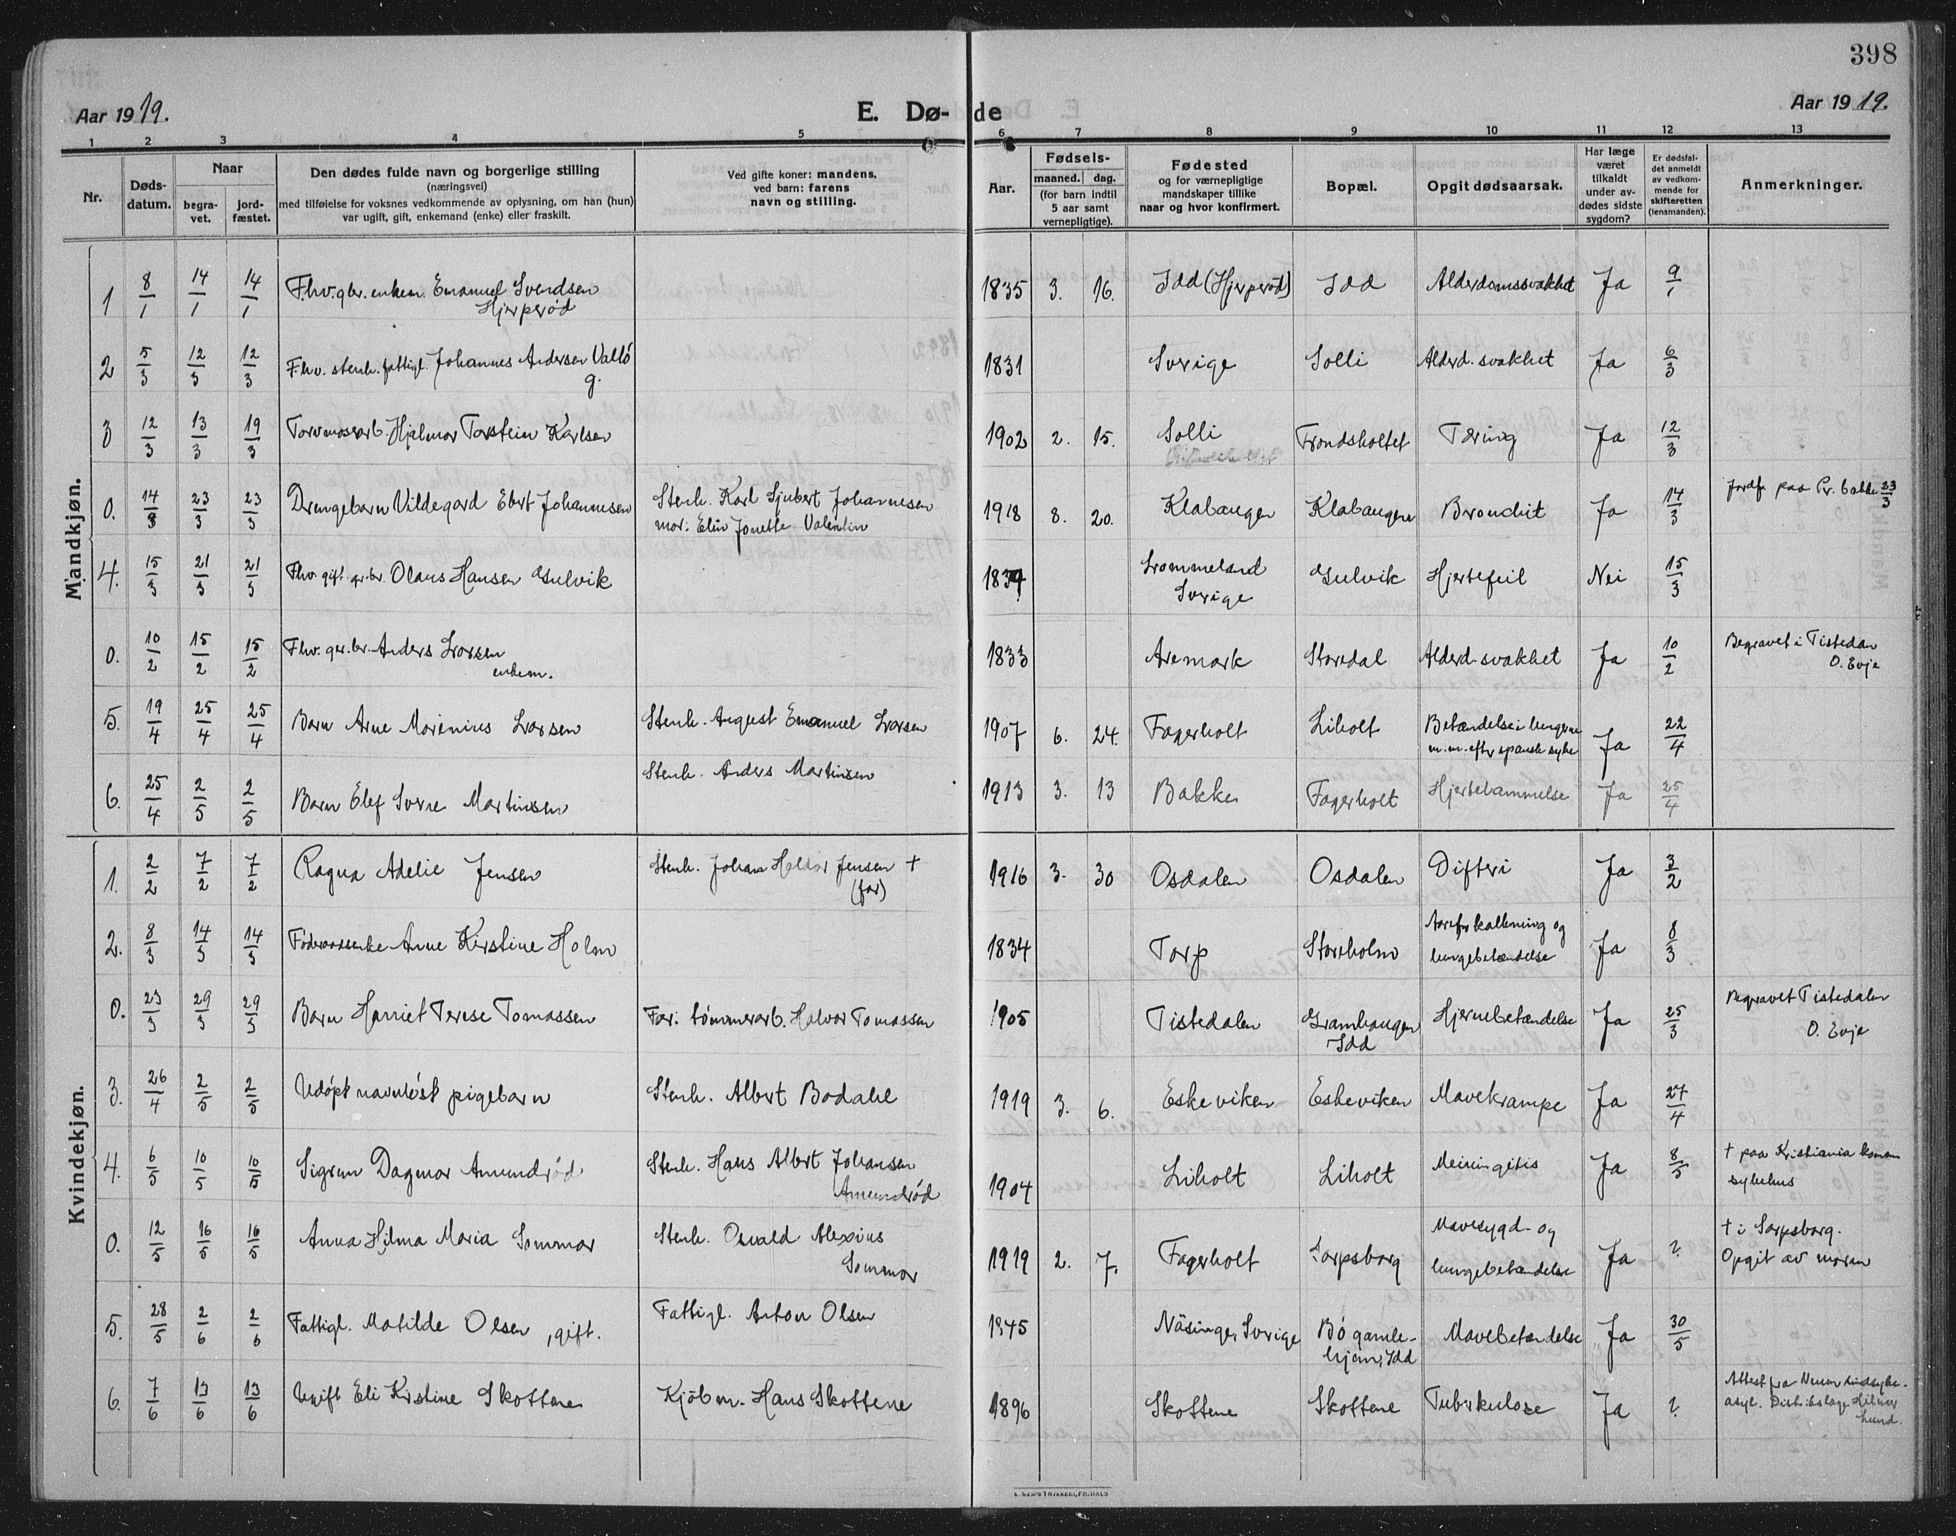 398
Aar 1919. E. Dø-de Aar 1919.
1 2 3 4 5 6 7 8 9 10 11 12 13
Nr. Døds-datum. Naar begra-vet. jord-fæstet. Den dødes fulde navn og borgerlige stilling (næringsvei) med tilføielse for voksnes vedkommende av oplysning, om han (hun) var ugift, gift, enkemand (enke) eller fraskilt. Ved gifte koner: mandens, ved barn: farens navn og stilling. Aar. Fødsels- maaned. dag. (for barn indtil 5 aar samt vernepligtige). Fødested og for værnepligtige mandskaper tillike naar og hvor konfirmert. Bopæl. Opgit dødsaarsak. Har læge været tilkaldt under av-dødes sidste sygdom? Er dødsfal-det anmeldt av vedkom-mende for skifteretten (lensmanden). Anmerkninger.
Mandkjøn.
1 8/1 14/1 14/1 Fhv. gbr. enkem. Emanuel Svendsen Hjerperød 1835 3. 16. Idd (Hjerperød) Idd Alderdomssvakhet Ja 9/1
2 5/3 12/3 12/3 Fhv. stenh. fattigl. Johannes Andersen Vallö g. 1831 Sverige Solli Alderd. svakhet Ja 6/3
3 12/3 13/3 19/3 Torvmosearb. Hjalmar Torstein Karlsen 1902 2. 15. Solli Trondsholtet Tæring Ja 12/3
0. 14/3 23/3 23/3 Drengebarn Vildegard Ebert Johannesen Stenh. Karl Sjubert Johannesen mor: Elin Jonette Valentin 1918 8. 20. Klabaugen Klabaugen Bronchit Ja 14/3 Jordf. paa Pr. bakke 23/3
4. 15/3 21/3 21/3 Fhv. gift gr.br. Olaus Hansen Gulvik 1834 Lommeland Sverige Gulvik Hjertefeil Nei 15/3
0. 10/2 15/2 15/2 Fhv. gr.br. Anders Larsen enkem. 1833 Aremark Storedal Alderd. svakhet Ja 10/2 Begravet i Tistedalen O. Evje
5. 19/4 25/4 25/4 Barn Arne Marenius Larsen Stenh. August Emanuel Larsen 1907 6. 24. Fagerholt Liholt Betændelse i lungerne m.m. efter spansk syke Ja 22/4
6. 25/4 2/5 2/5 Barn Elef Sverre Martinsen Stenh. Anders Martinsen 1913 3. 13 Bakke Fagerholt Hjertelammelse Ja 25/4
Kvindekjøn.
1. 2/2 7/2 7/2 Ragna Adelie Jensen Stenh. Johan Halvor Jensen † (far) 1916 3. 30 Osdalen Osdalen Difteri Ja 3/2
2. 8/3 14/3 14/3 Føderaadsenke Anne Kirstine Holm 1834 Torp Storeholm Aareforkalkning og lungebetændelse Ja 8/3
0. 23/3 29/3 29/3 Barn Harriet Terese Tomassen Far: tømmerarb. Halvor Tomassen 1905 Tistedalen Gramhaugen Idd Hjernebetændelse Ja 25/3 Begravet Tistedalen O. Evje
3. 26/4 2/5 2/5 Udöpt navnlöst pigebarn Stenh. Albert Bodahl 1919 3. 6. Eskeviken Eskeviken Mavekrampe Ja 27/4
4. 6/5 10/5 10/5 Sigrun Dagmar Amundröd Stenh. Hans Albert Johansen Amundröd 1904 Liholt Liholt Meiningitis Ja 8/5 † paa Kristiania komm sykehus
0. 12/5 16/5 16/5 Anna Hilma Maria Sommar Stenh. Osvald Alexius Sommar 1919 2. 7. Fagerholt Sarpsborg Mavesygd. og lungebetændelse Ja ? † i Sarpsborg. Opgit av moren
5. 28/5 2/6 2/6 Fattigl. Matilde Olsen, gift. Fattigl. Anton Olsen 1845 Näsinge, Sverige Bö gamle-hjem, Idd Mavebetændelse Ja 30/5
6. 7/6 13/6 13/6 Ugift Eli Kirstine Skottene Kjöbm. Hans Skottene 1896 Skottene Skottene Tuberkulose Ja ? Attest fra sindsyke-asyl. Distriktslæge Lund.